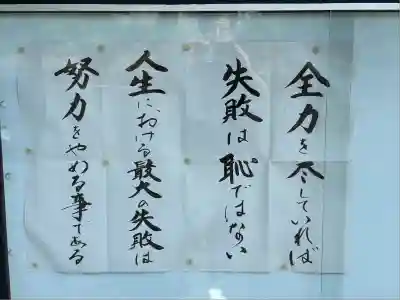 全力を尽していれば
失敗は恥ではない
人生における最大の失敗は
努力をやめる事である